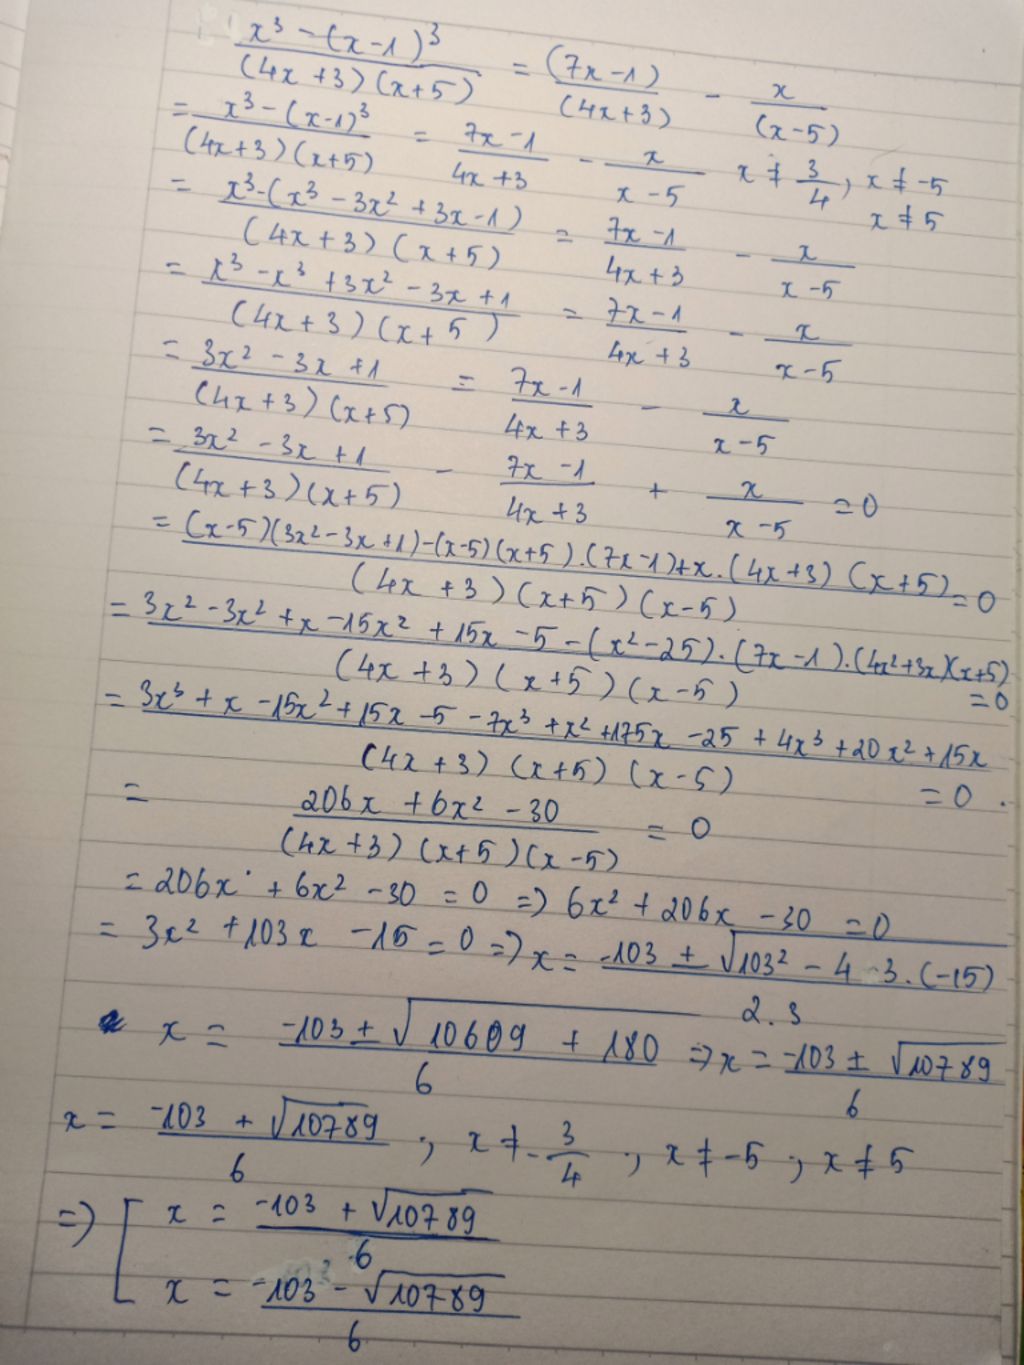 x³ - (x-1)³ / (4x+3)(x+5) = (7x-1) / (4x+3) - x / (x-5)
= x³ - (x-1)³ / (4x+3)(x+5) = 7x-1 / 4x+3 - x / x-5 x ≠ 3/4, x ≠ -5
x ≠ 5
= x³-(x³ - 3x² + 3x-1) / (4x+3)(x+5) = 7x-1 / 4x+3 - x / x-5
= x³ - x³ + 3x² - 3x + 1 / (4x+3)(x+5) = 7x-1 / 4x+3 - x / x-5
= 3x² - 3x + 1 / (4x+3)(x+5) = 7x-1 / 4x+3 - x / x-5
= 3x² - 3x + 1 / (4x+3)(x+5) - 7x-1 / 4x+3 + x / x-5 = 0
= (x-5)(3x²-3x+1)-(x-5)(x+5).(7x-1)+x.(4x+3)(x+5) / (4x+3)(x+5)(x-5) = 0
= 3x² - 3x² + x - 15x² + 15x - 5 - (x²-25).(7x-1).(4x²+3x)(x+5) / (4x+3)(x+5)(x-5) = 0
= 3x³ + x - 15x² + 15x - 5 - 7x³ + x² + 175x - 25 + 4x³ + 20x² + 15x / (4x+3)(x+5)(x-5) = 0.
= 206x + 6x² - 30 / (4x+3)(x+5)(x-5) = 0
= 206x + 6x² - 30 = 0 => 6x² + 206x - 30 = 0
= 3x² + 103x - 15 = 0 => x = -103 ± √103² - 4 3.(-15) / 2.3
x = -103 ± √10609 + 180 / 6 => x = -103 ± √10789 / 6
x = -103 + √10789 / 6 ; x ≠ -3/4 ; x ≠ -5 ; x ≠ 5
=> [ x = -103 + √10789 / 6
x = -103 - √10789 / 6